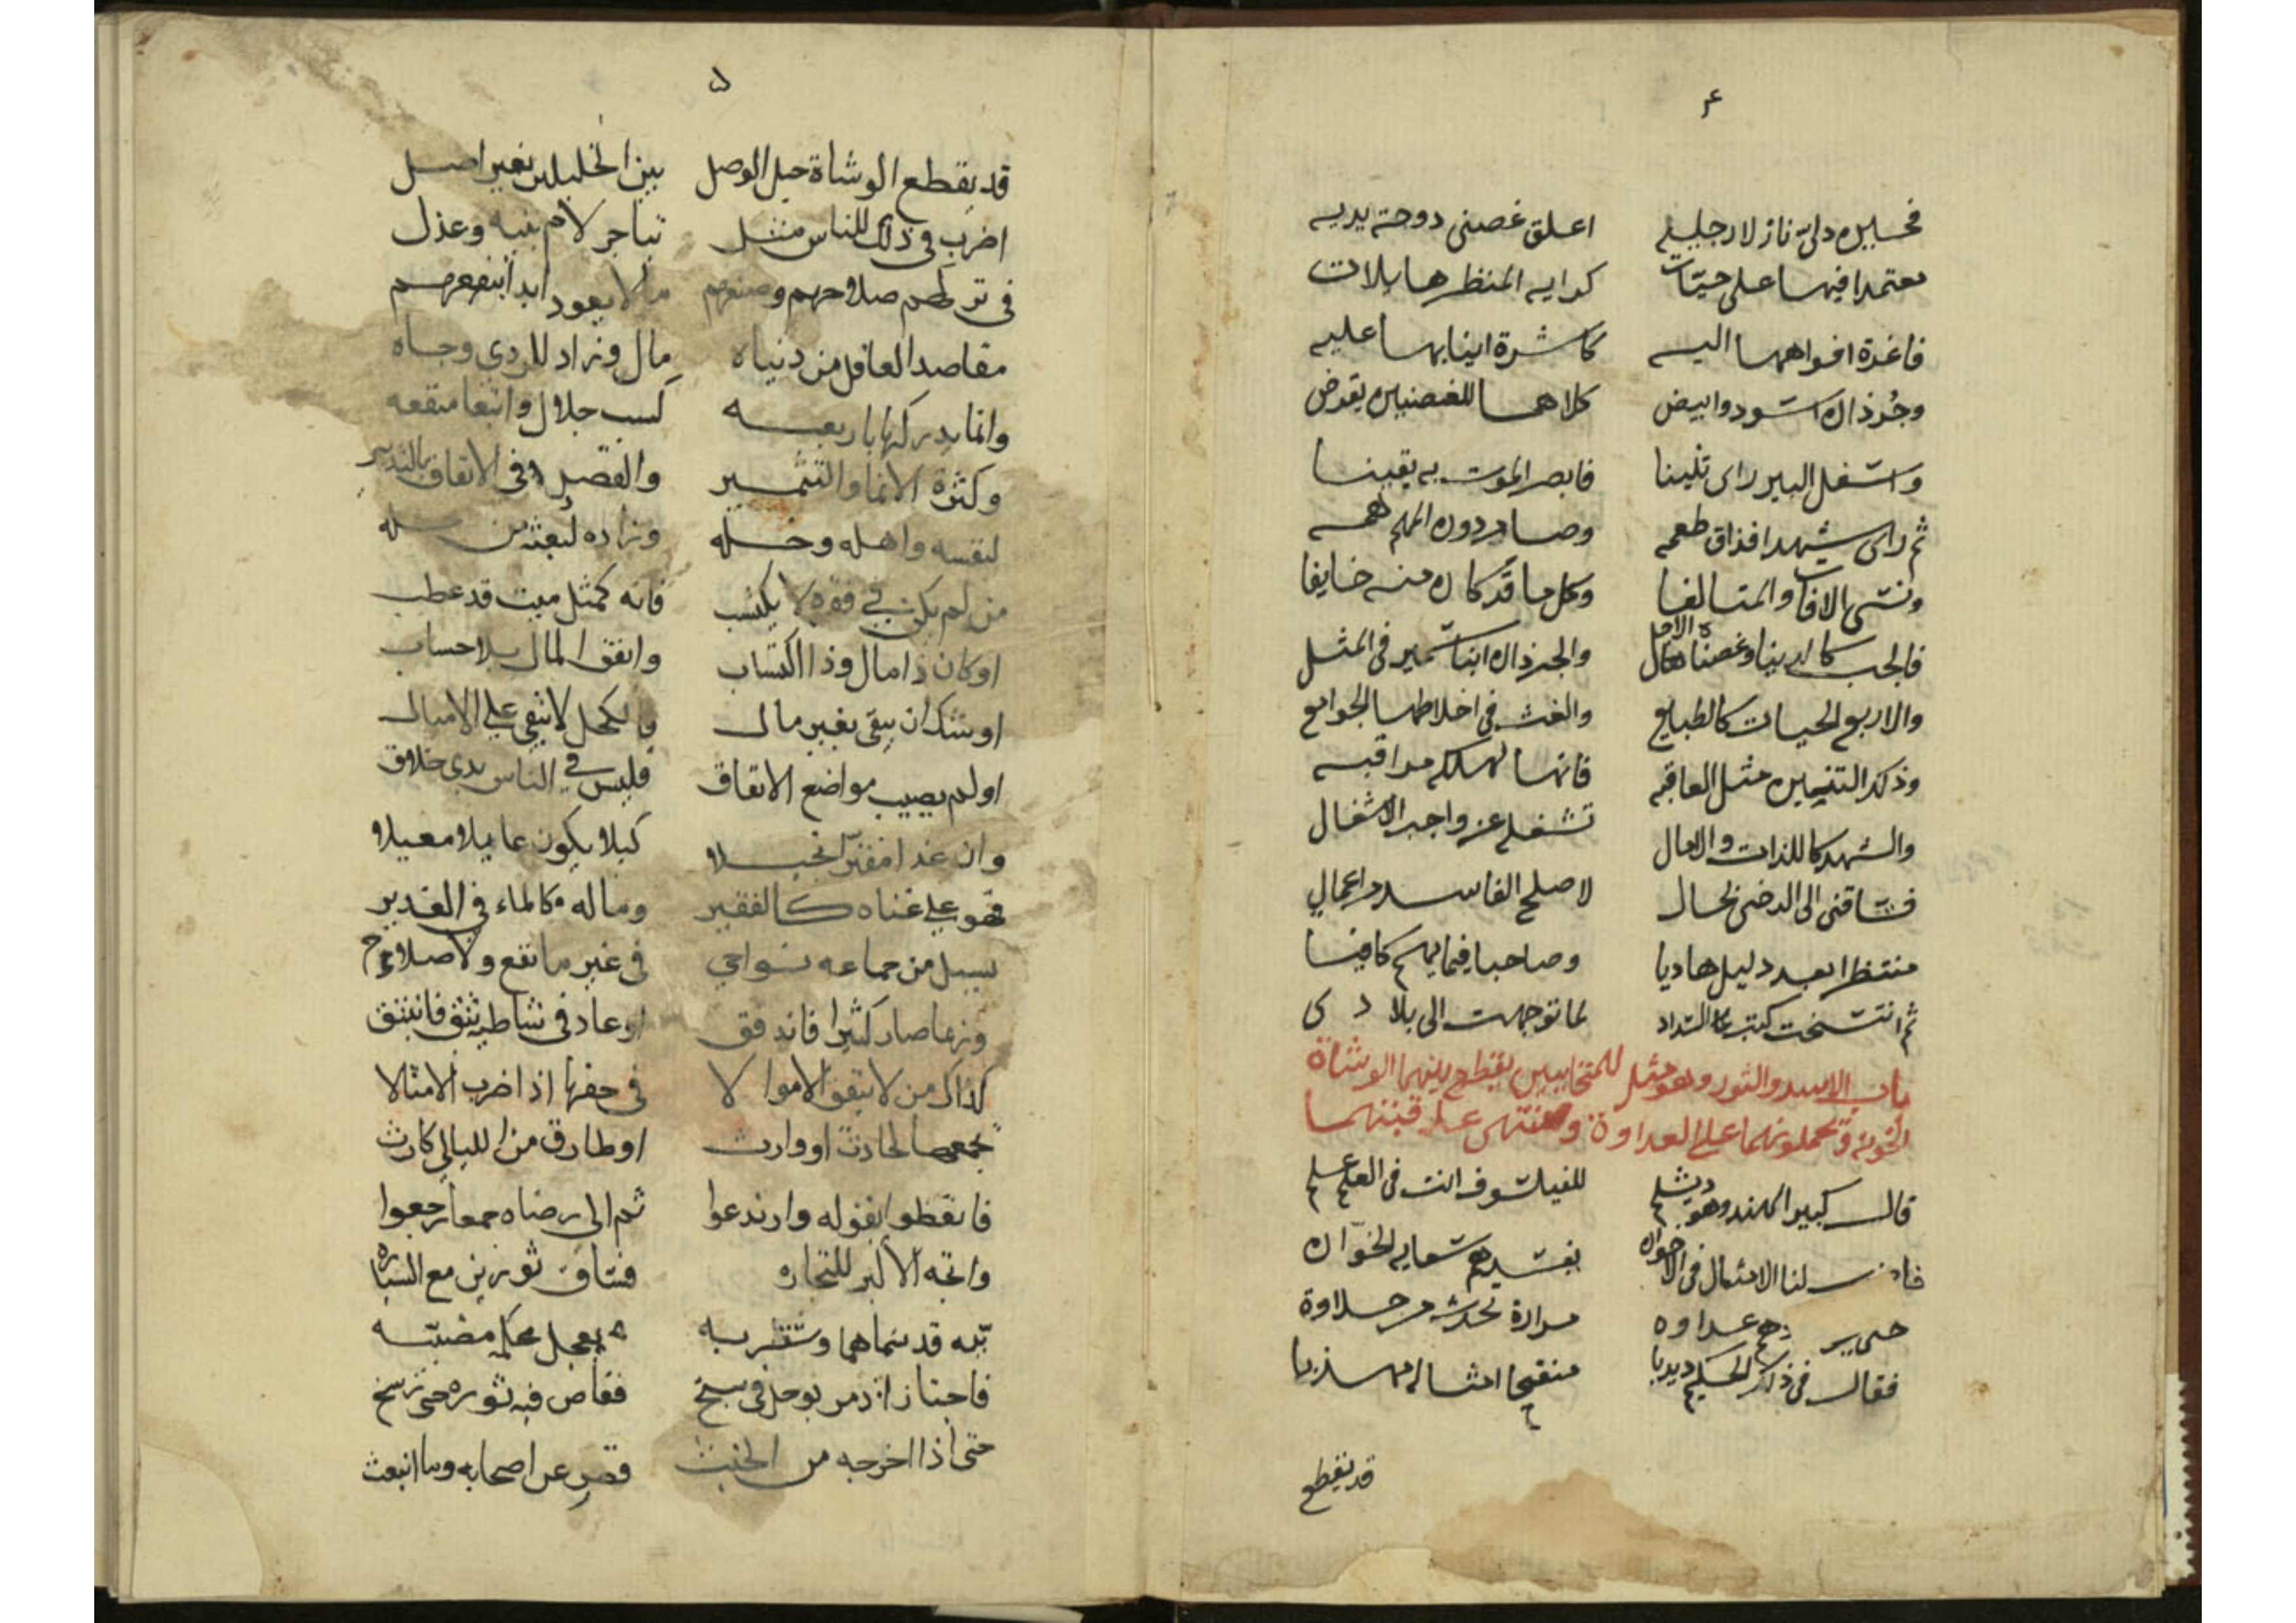 ۴
فحسين دلى نازلا رجليه اعلق غصنى دوحة يديه
معتمدا فيها على حيات كرايه المنظرها بلات
فاغرة افواهها اليه كاشرة انيابها عليه
وجرذان اسود وابيض كلاهما للغصنين يقرض
واسفل البير راى تنينا فابصر الموت به يقينا
ثم راى شهدا فذاق طعمه وصار دون المهم همه
ونسى الافات والمتالفا وكل ما قد كان منه خايفا
فالجب كالدنيا وغصنا الاجل والجرذان ابنا سمير فى المثل
والاربع الحيات كالطبايع والغث فى اخلاطها الجوامع
وذكر التنين مثل العاقبه فانها لهلكه مراقبه
والشهد كاللذات والامال تشغله عن واجب الاشغال
فساقنى الى الرضى بحال لاصلح الفاسد من اعمالي
منتظرا بعد دليل هاديا وصاحبا فيما يهم كافيا
ثم انتسخت كتب السداد لما توجهت الى بلادى
باب الاسد والثور وهو مثل للمتحابين يقطع بينهما الوشاة
الخونة وتحملونهما على العداوة
قال كبير الهند وهو دبشلم للفيلسوف انت فى العلم علم
لنا الامثال فى الاخوان يفسدهم سعايه الخوان
عداوه مرارة تحدث من حلاوة
فقال فى ذلك الحكيم ديدبا منقحا امثاله مهذبا
قد يقطع
۵
قد يقطع الوشاة حبل الوصل بين الخليلين بغير اصل
اضرب فى ذلك للناس مثل تباجر لام بنيه وعذل
فى تركهم صلاحهم وصنعهم مالا يعود ابدا بنفعهم
مقاصد العاقل من دنياه مال وزاد للردى وجاه
وانما يدركها باربعه كسب حلال وابتغا منفعه
وكثرة الانما والتثمير والقصد فى الانفاق بالتدبير
لنفسه واهله وخله وزاده لبعثه من
من لم يكن فى فقره لا يكتسب فانه كمثل ميت قد عطب
او كان ذا مال وذا اكتساب وانفق المال بلا حساب
اوشك ان يبقى بغير مال والكحل لا يبقى على الاميال
او لم يصيب مواضع الانفاق فليس فى الناس بذى خلاق
وان غدا مقترا بخيلا كيلا يكون عايلا معيلا
فهو على غناه كالفقير وماله كالماء فى الغدير
يسيل من جماعه نواحي فى غير ما نفع ولا صلاح
وربما صار كثيرا فاندفق او عاد فى شاطيه بثق فانبثق
كذاك من لا ينفق الاموالا فى حفرها اذا ضرب الامثالا
يجمعها لحادث او وارث او طارق من الليالي كارث
فاتعظوا بقوله وارتدعوا ثم الى رضاه جمعا رجعوا
واتجه الاكبر للتجاره فساق ثورين مع السياره
قد سماهما وشتربه بعجل محكمه مضببه
فاجتازا فى سبخ ففاص فيه ثوره حتى رسخ
حتى اذا اخرجه من الخبث قصر عن اصحابه وما انبعث